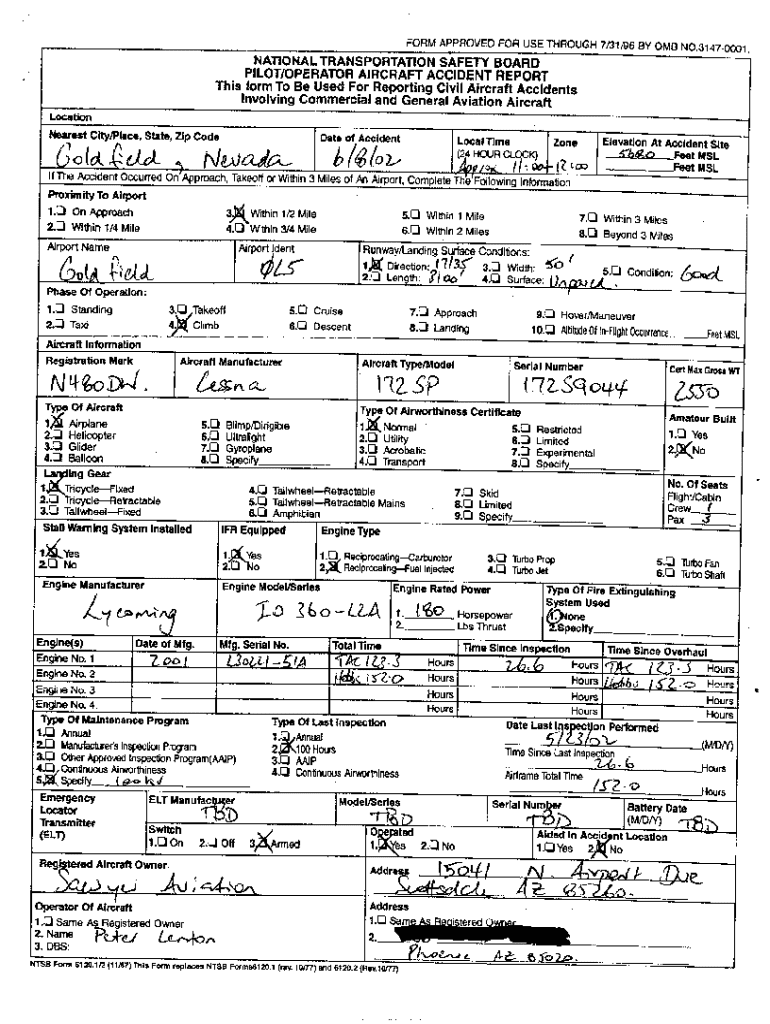 FORM APPROVED FOR USE THROUGH 7/31/96 BY OMB NO.3147-0001.
NATIONAL TRANSPORTATION SAFETY BOARD
PILOT/OPERATOR AIRCRAFT ACCIDENT REPORT
This form To Be Used For Reporting Civil Aircraft Accidents
Involving Commercial and General Aviation Aircraft
Location
Nearest City/Place, State, Zip Code Date of Accident Local Time Zone Elevation At Accident Site
Goldfield, Nevada 6/8/02 (24 HOUR CLOCK) 5680 Feet MSL
Approx 11:00 12:00 Feet MSL
If The Accident Occurred On Approach, Takeoff or Within 3 Miles of An Airport, Complete The Following Information
Proximity To Airport
1. On Approach 3. Within 1/2 Mile 5. Within 1 Mile 7. Within 3 Miles
2. Within 1/4 Mile 4. Within 3/4 Mile 6. Within 2 Miles 8. Beyond 3 Miles
Airport Name Airport Ident Runway/Landing Surface Conditions:
Goldfield 0L5 1. Direction: 17/35 3. Width: 50' 5. Condition: Good
2. Length: 4. Surface: Unpaved.
Phase Of Operation:
1. Standing 3. Takeoff 5. Cruise 7. Approach 9. Hover/Maneuver
2. Taxi 4. Climb 6. Descent 8. Landing 10. Altitude Of In-Flight Occurrence Feet MSL
Aircraft Information
Registration Mark Aircraft Manufacturer Aircraft Type/Model Serial Number Cert Max Gross WT
N480DW. Cessna 172 SP 172S9044 2550
Type Of Aircraft Type Of Airworthiness Certificate Amateur Built
1. Airplane 5. Blimp/Dirigible 1. Normal 5. Restricted 1. Yes
2. Helicopter 6. Ultralight 2. Utility 6. Limited 2. No
3. Glider 7. Gyroplane 3. Acrobatic 7. Experimental
4. Balloon 8. Specify 4. Transport 8. Specify
Landing Gear No. Of Seats
1. Tricycle—Fixed 4. Tailwheel—Retractable 7. Skid Flight/Cabin
2. Tricycle—Retractable 5. Tailwheel—Retractable Mains 8. Limited Crew 1
3. Tailwheel—Fixed 6. Amphibian 9. Specify Pax 3
Stall Warning System Installed IFR Equipped Engine Type
1. Yes 1. Yes 1. Reciprocating—Carburetor 3. Turbo Prop 5. Turbo Fan
2. No 2. No 2. Reciprocating—Fuel Injected 4. Turbo Jet 6. Turbo Shaft
Engine Manufacturer Engine Model/Series Engine Rated Power Type Of Fire Extinguishing
System Used
Lycoming IO 360-L2A 1. 180 Horsepower 1. None
2. Lbs Thrust 2. Specify
Engine(s) Date of Mfg. Mfg. Serial No. Total Time Time Since Inspection Time Since Overhaul
Engine No. 1 2001 L30221-51A TAC 123.3 Hours 26.6 Hours TAC 123.3 Hours
Engine No. 2 Hobbs 152.0 Hours Hours Hobbs 152.0 Hours
Engine No. 3 Hours Hours Hours
Engine No. 4. Hours Hours Hours
Type Of Maintenance Program Type Of Last Inspection Date Last Inspection Performed
1. Annual 1. Annual 5/23/02 (M/D/Y)
2. Manufacturer's Inspection Program 2. 100 Hours Time Since Last Inspection
3. Other Approved Inspection Program(AAIP) 3. AAIP 26.6 Hours
4. Continuous Airworthiness 4. Continuous Airworthiness Airframe Total Time
5. Specify 152.0 Hours
Emergency ELT Manufacturer Model/Series Serial Number Battery Date
Locator TBD TBD TBD (M/D/Y) TBD
Transmitter Switch Operated Aided In Accident Location
(ELT) 1. On 2. Off 3. Armed 1. Yes 2. No 1. Yes 2. No
Registered Aircraft Owner Address 15041 N. Airport Drive
Sawyer Aviation Scottsdale AZ 85260.
Operator Of Aircraft Address
1. Same As Registered Owner 1. Same As Registered Owner
2. Name Peter Lenton 2.
3. DBS: Phoenix AZ 85020.
NTSB Form 6120.1/2 (11/87) This Form replaces NTSB Forms6120.1 (rev. 10/77) and 6120.2 (Rev.10/77)